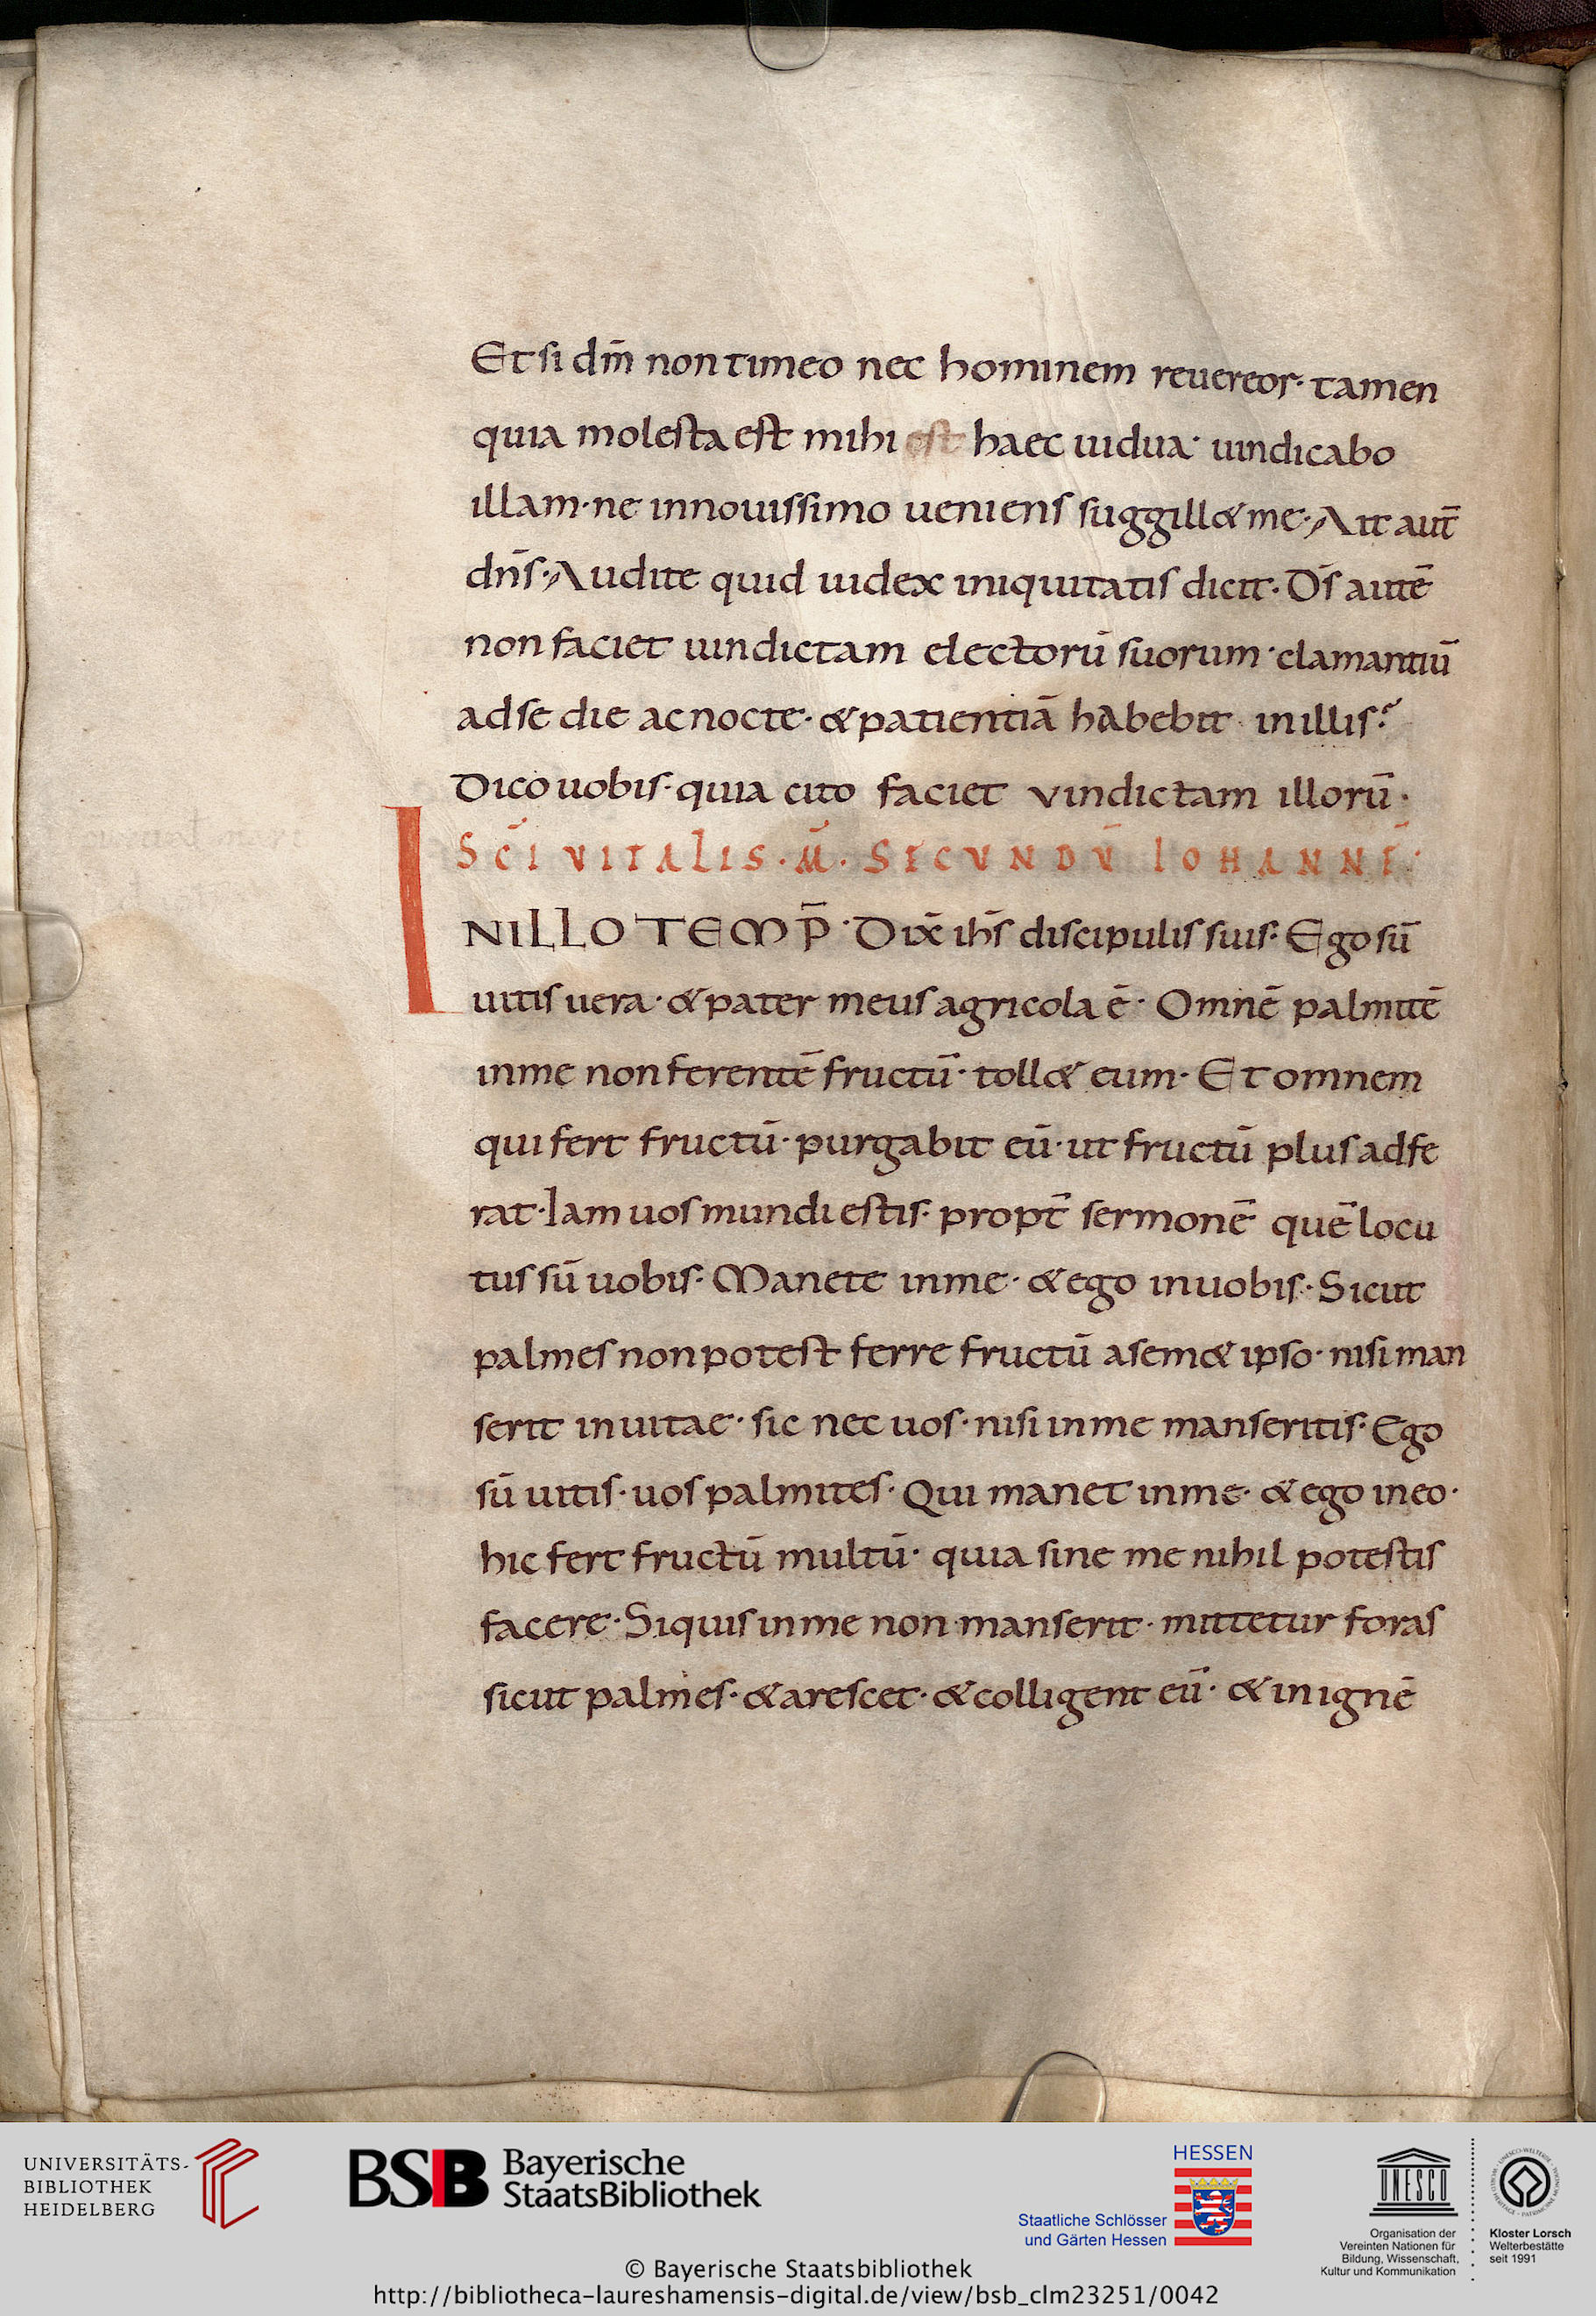 Et si dm̄ non timeo nec hominem reuereor· tamen
quia molesta est mihi est haec uidua· uindicabo
illam· ne in nouissimo ueniens suggill& me· Ait aut̄
dn̄s· Audite quid iudex iniquitatis dicit· D̄s autē
non faciet uindictam electorū suorum· clamantiū
ad se die ac nocte· & patientiā habebit in illis?
Dico uobis· quia cito faciet vindictam illorū·
SC̄I VITALIS· M̄· SECVNDV̄ IOHANNĒ·
INILLO TEMP̄· Dix̄ ih̄s discipulis suis· Ego sū
uitis uera· & pater meus agricola ē· Omnē palmitē
in me non ferentē fructū· toll& eum· Et omnem
qui fert fructū· purgabit eū· ut fructū plus adfe
rat· Iam uos mundi estis· propt̄ sermonē quē locu
tus sū uobis· Manete in me· & ego in uobis· Sicut
palmes non potest ferre fructū a sem& ipso· nisi man
serit in uitae· sic nec uos· nisi in me manseritis· Ego
sū uitis· uos palmites· Qui manet in me· & ego in eo·
hic fert fructū multū· quia sine me nihil potestis
facere· Si quis in me non manserit· mittetur foras
sicut palmes· & arescet· & colligent eū· & in ignē
UNIVERSITÄTS-
BIBLIOTHEK
HEIDELBERG
BSB Bayerische
StaatsBibliothek
HESSEN
Staatliche Schlösser
und Gärten Hessen
UNESCO
Organisation der
Vereinten Nationen für
Bildung, Wissenschaft,
Kultur und Kommunikation
Kloster Lorsch
Welterbestätte
seit 1991
© Bayerische Staatsbibliothek
http://bibliotheca-laureshamensis-digital.de/view/bsb_clm23251/0042